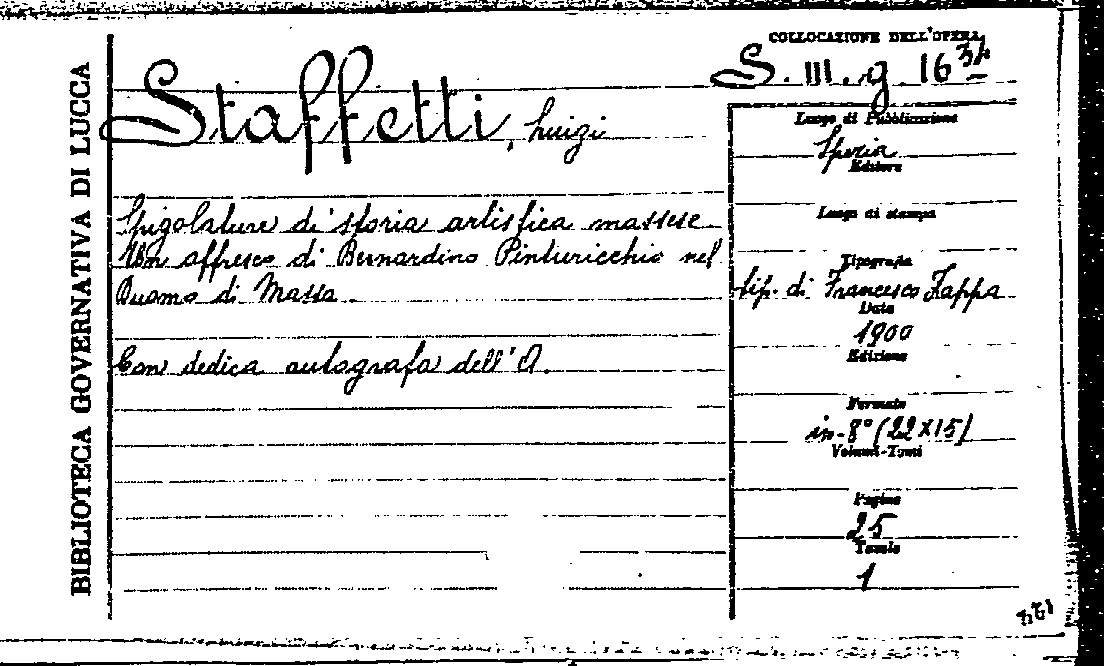 BIBLIOTECA GOVERNATIVA DI LUCCA
Staffetti, Luigi
Spigolature di storia artistica massese
Un affresco di Bernardino Pinturicchio nel
Duomo di Massa.
Con dedica autografa dell'A.
COLLOCAZIONE DELL'OPERA
S. III. g. 16 34
Luogo di Pubblicazione
Spezia
Editore
Luogo di stampa
Tipografia
tip. di Francesco Zappa
Data
1900
Edizione
Formato
in-8° (22x15)
Volumi-Tomi
Pagine
25
Tavole
1